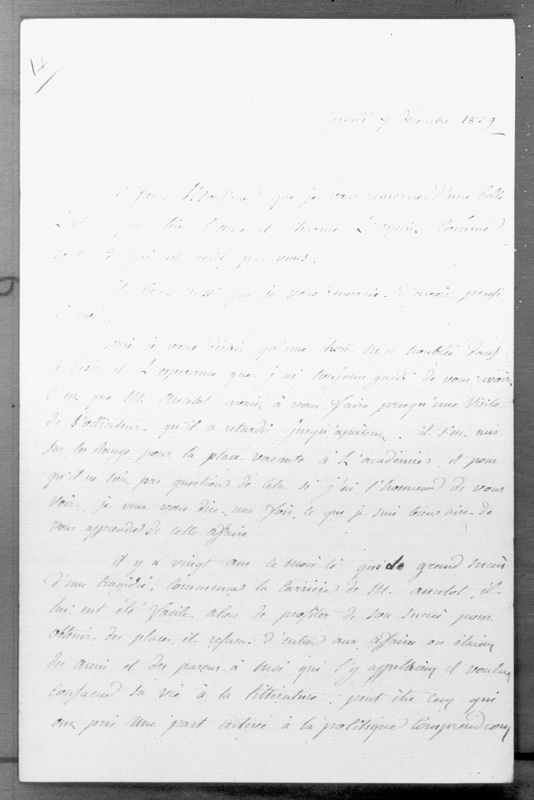 7 décembre 1839
il faut Monsieur, que je vous remercie d'une belle
lecture qui l'ame et L'esprit, comme
tout ce qui est écrit par vous.
il faut aussi que je vous remercie d'avoir pensé
à moi.
puis je vous dirai qu'une chose m'a troublée dans
le desir et L'esperance que j'ai toujours gardé de vous avoir
c'est que M. Ancelot avait à vous faire presqu'une visite
de Solliciteur qu'il a retardée jusqu'aprésent. il s'est mis
sur les rangs pour la place vacante à L'académie et pour
qu'il ne soit pas question de cela si j'ai l'honneur de vous
voir, je veux vous dire une fois ce que je suis bien aise de
vous apprendre de cette affaire.
il y a vingt ans ce mois ci que de grand succès
d'une tragédie commença la carrière de M. ancelot. il
lui eut été facile alors de profiter de son succès pour
obtenir des places, il refusa d'entrer aux affaires où étaient
des amis et des parens à moi qui l'y appellaient et voulut
consacrer sa vie à la littérature. peut être ceux qui
ont pris une part active à la politique comprendront